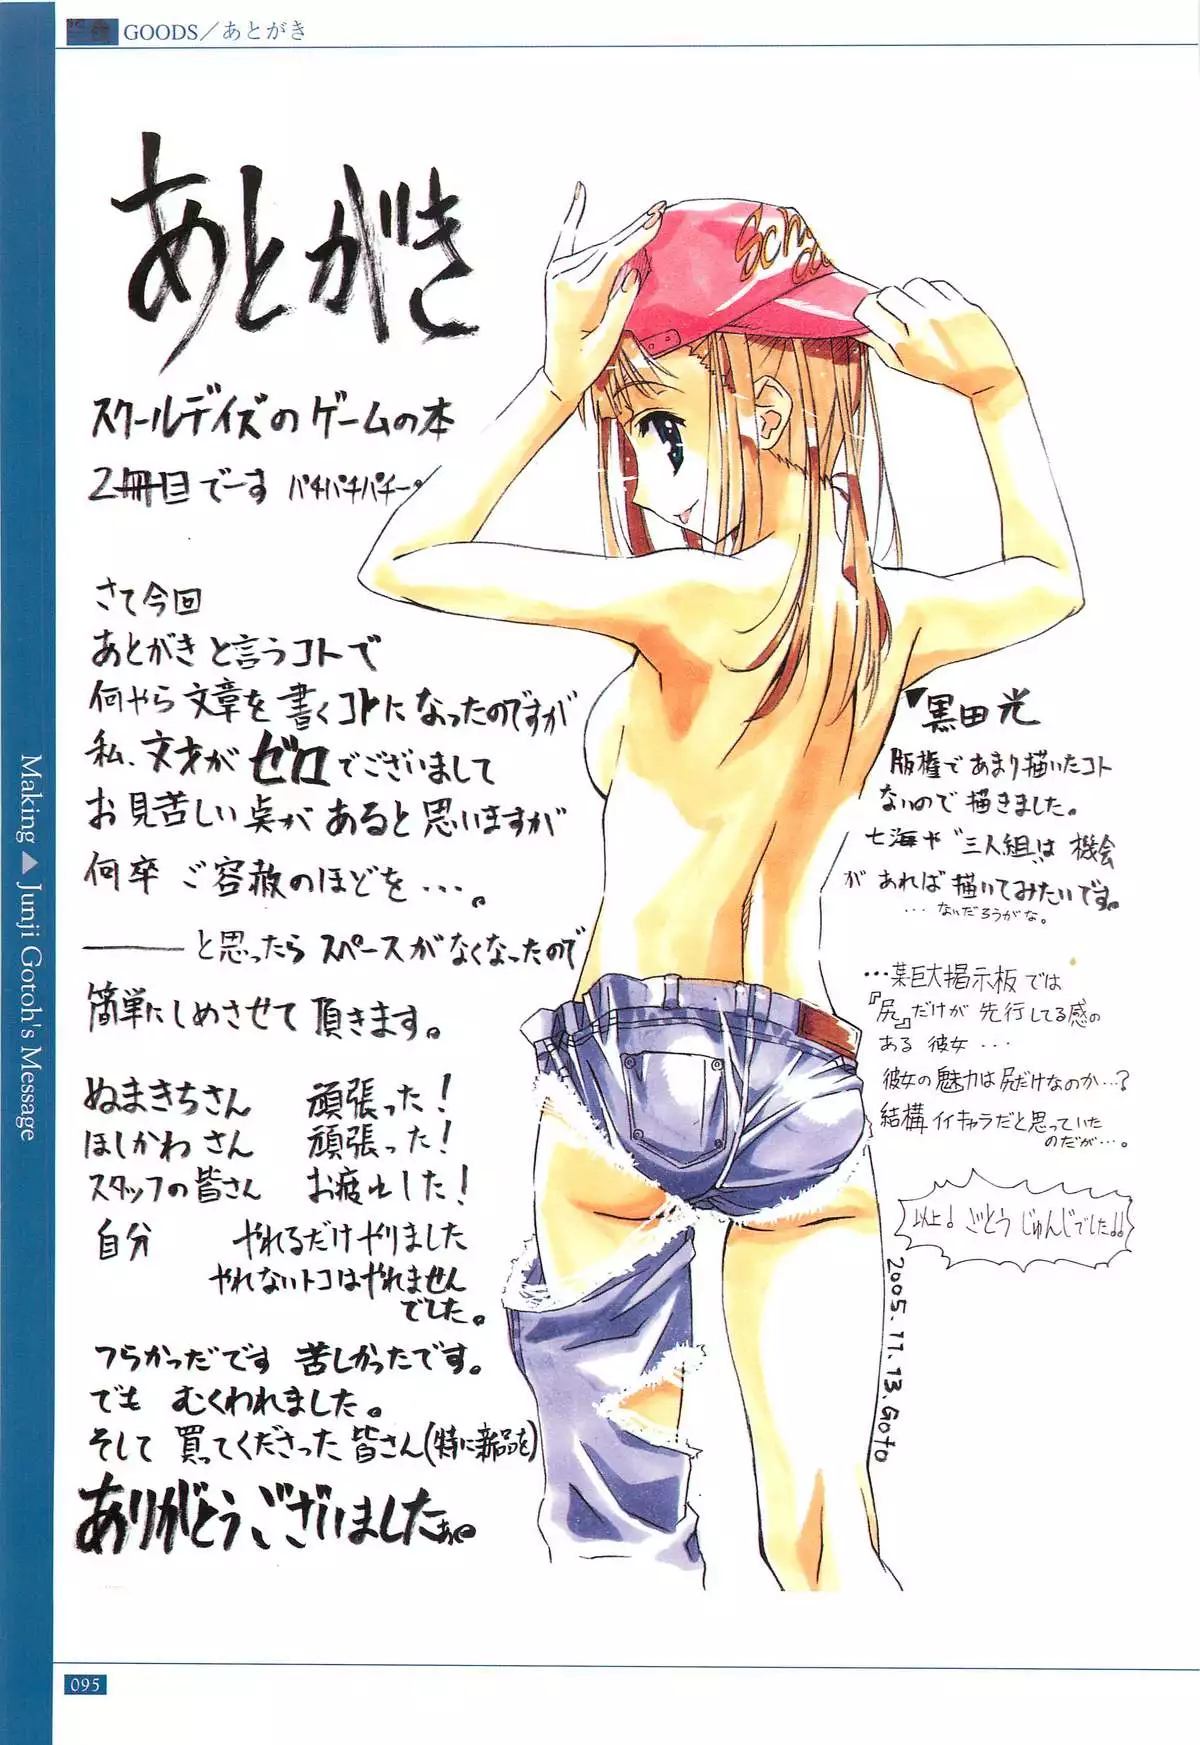 GOODS／あとがき
あとがき
スクールデイズのゲームの本
2冊目でーす パチパチパチー
さて今回
あとがきと言うコトで
何やら文章を書くコトになったのですが
私、文才がゼロでございまして
お見苦しい点があると思いますが
何卒 ご容赦のほどを…。
――と思ったら スペースがなくなったので
簡単にしめさせて頂きます。
ぬまきちさん 頑張った!
ほしかわさん 頑張った!
スタッフの皆さん お疲れした!
自分 やれるだけやりました
やれないトコはやれません
でした。
つらかっだです 苦しかったです。
でも むくわれました。
そして 買ってくださった皆さん(特に新品を)
ありがとうございましたぁ。
▼黒田光
版権であまり描いたコト
ないので描きました。
七海や〝三人組〟は機会
があれば描いてみたいです。
…ないだろうがな。
…某巨大掲示板では
『尻』だけが先行してる感の
ある彼女…
彼女の魅力は尻だけなのか…?
結構イイキャラだと思っていた
のだが…。
以上! ごとうじゅんじでした!!
2005.11.13.Goto
Making ▲ Junji Gotoh's Message
095